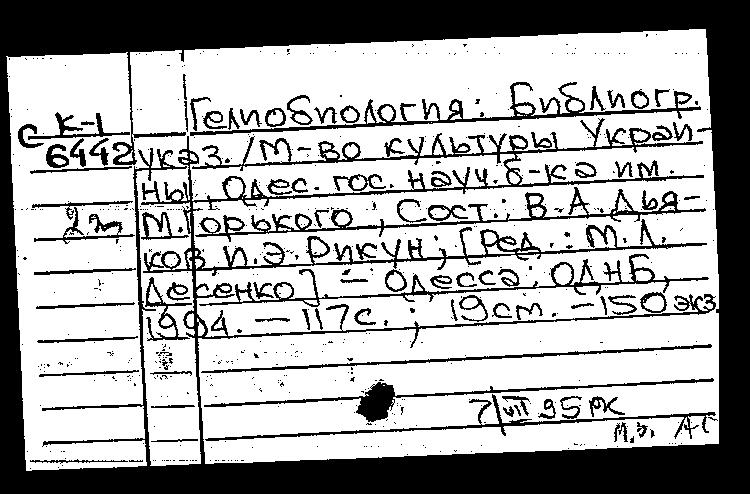 С К-1
6442
2 эк
Гелиобиология: Библиогр.
указ. / М-во культуры Украи-
ны, Одес. гос. науч. б-ка им.
М. Горького; Сост.: В.А. Дья-
ков, И.Э. Рикун; [Ред.: М.Л.
Десенко]. — Одесса: ОДНБ,
1994. — 117с.; 19см. — 150 экз.
7/VII 95 РК